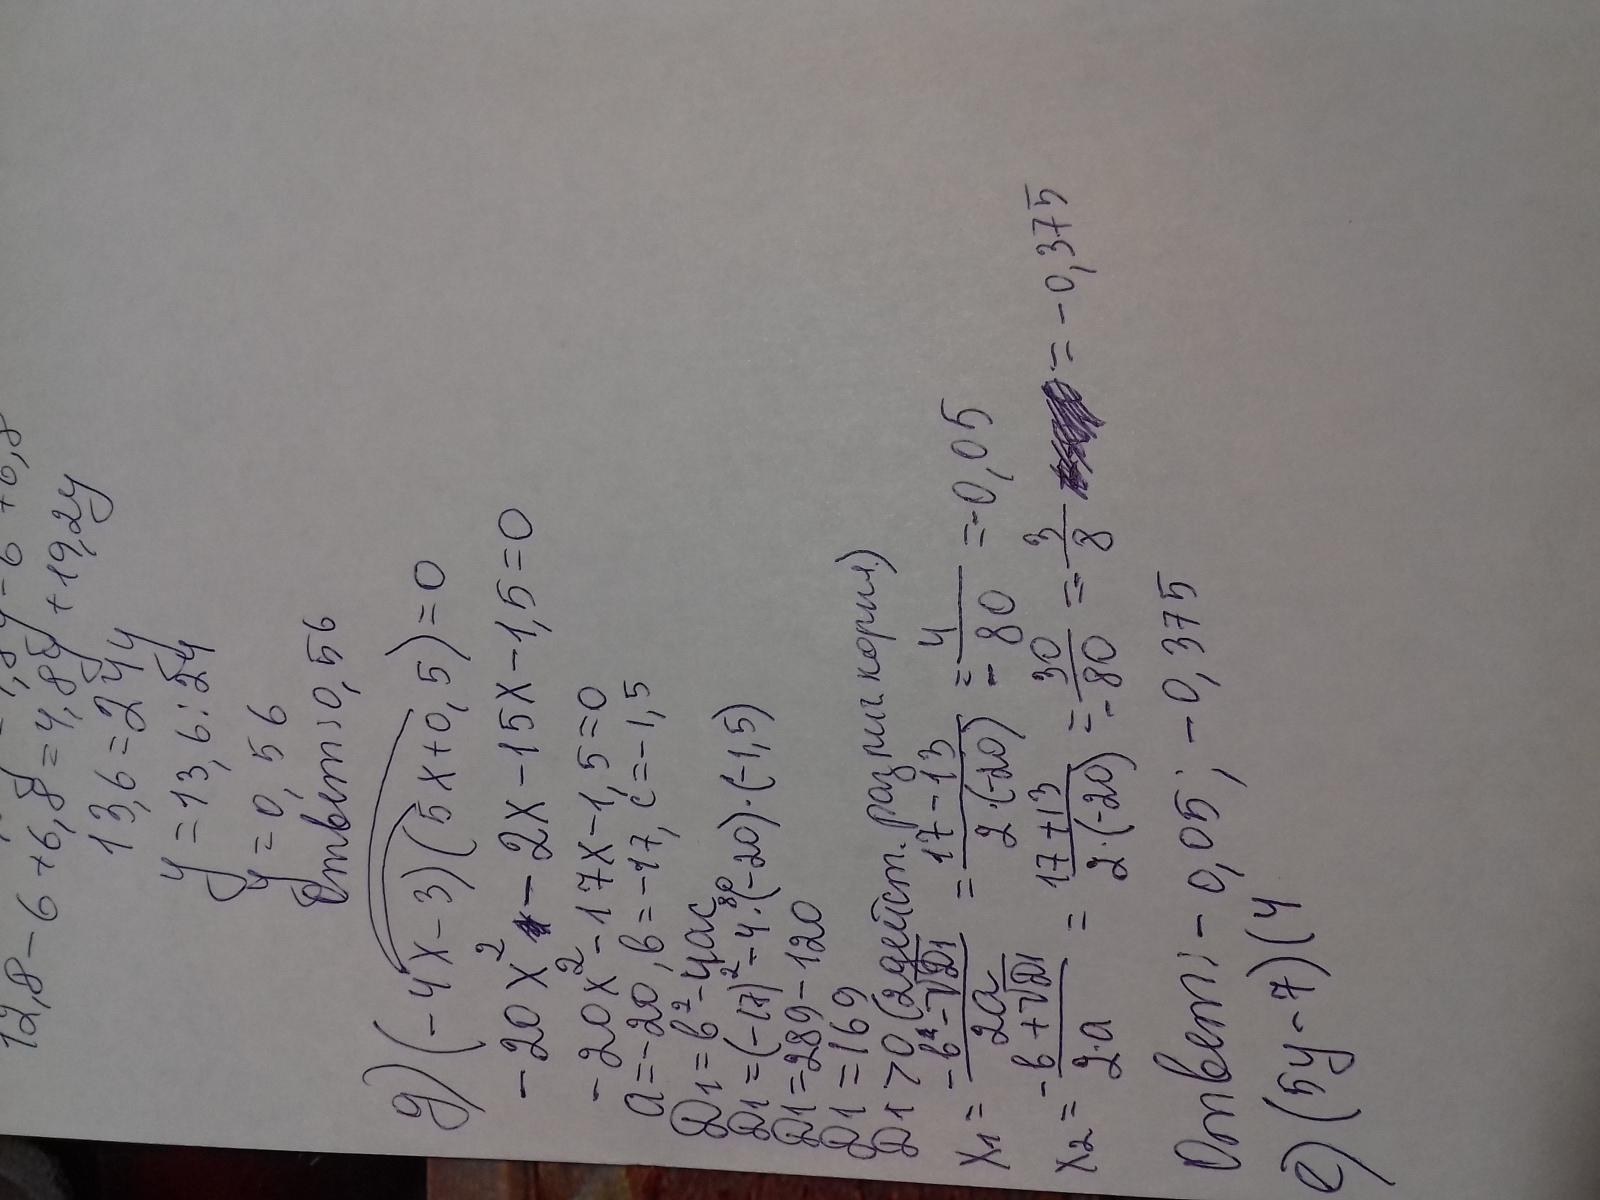 12,8-6+6,8=4,8y+19,2y
13,6=24y
y=13,6:24
y=0,56
Ответ: 0,56
д) (-4x-3)(5x+0,5)=0
-20x² -2x-15x-1,5=0
-20x²-17x-1,5=0
a=-20, b=-17, c=-1,5
D1=b²-4ac
D1=(-17)²-4·(-20)·(-1,5)
D1=289-120
D1=169
D1>0 (2 дейст. разли корни.)
x1= (-b-√D1)/2a = (17-13)/(2·(-20)) = 4/-80 =-0,05
x2= (-b+√D1)/2·a = (17+13)/(2·(-20)) = 30/-80 = -3/8 =-0,375
Ответ: -0,05; -0,375
е) (5y-7)(4